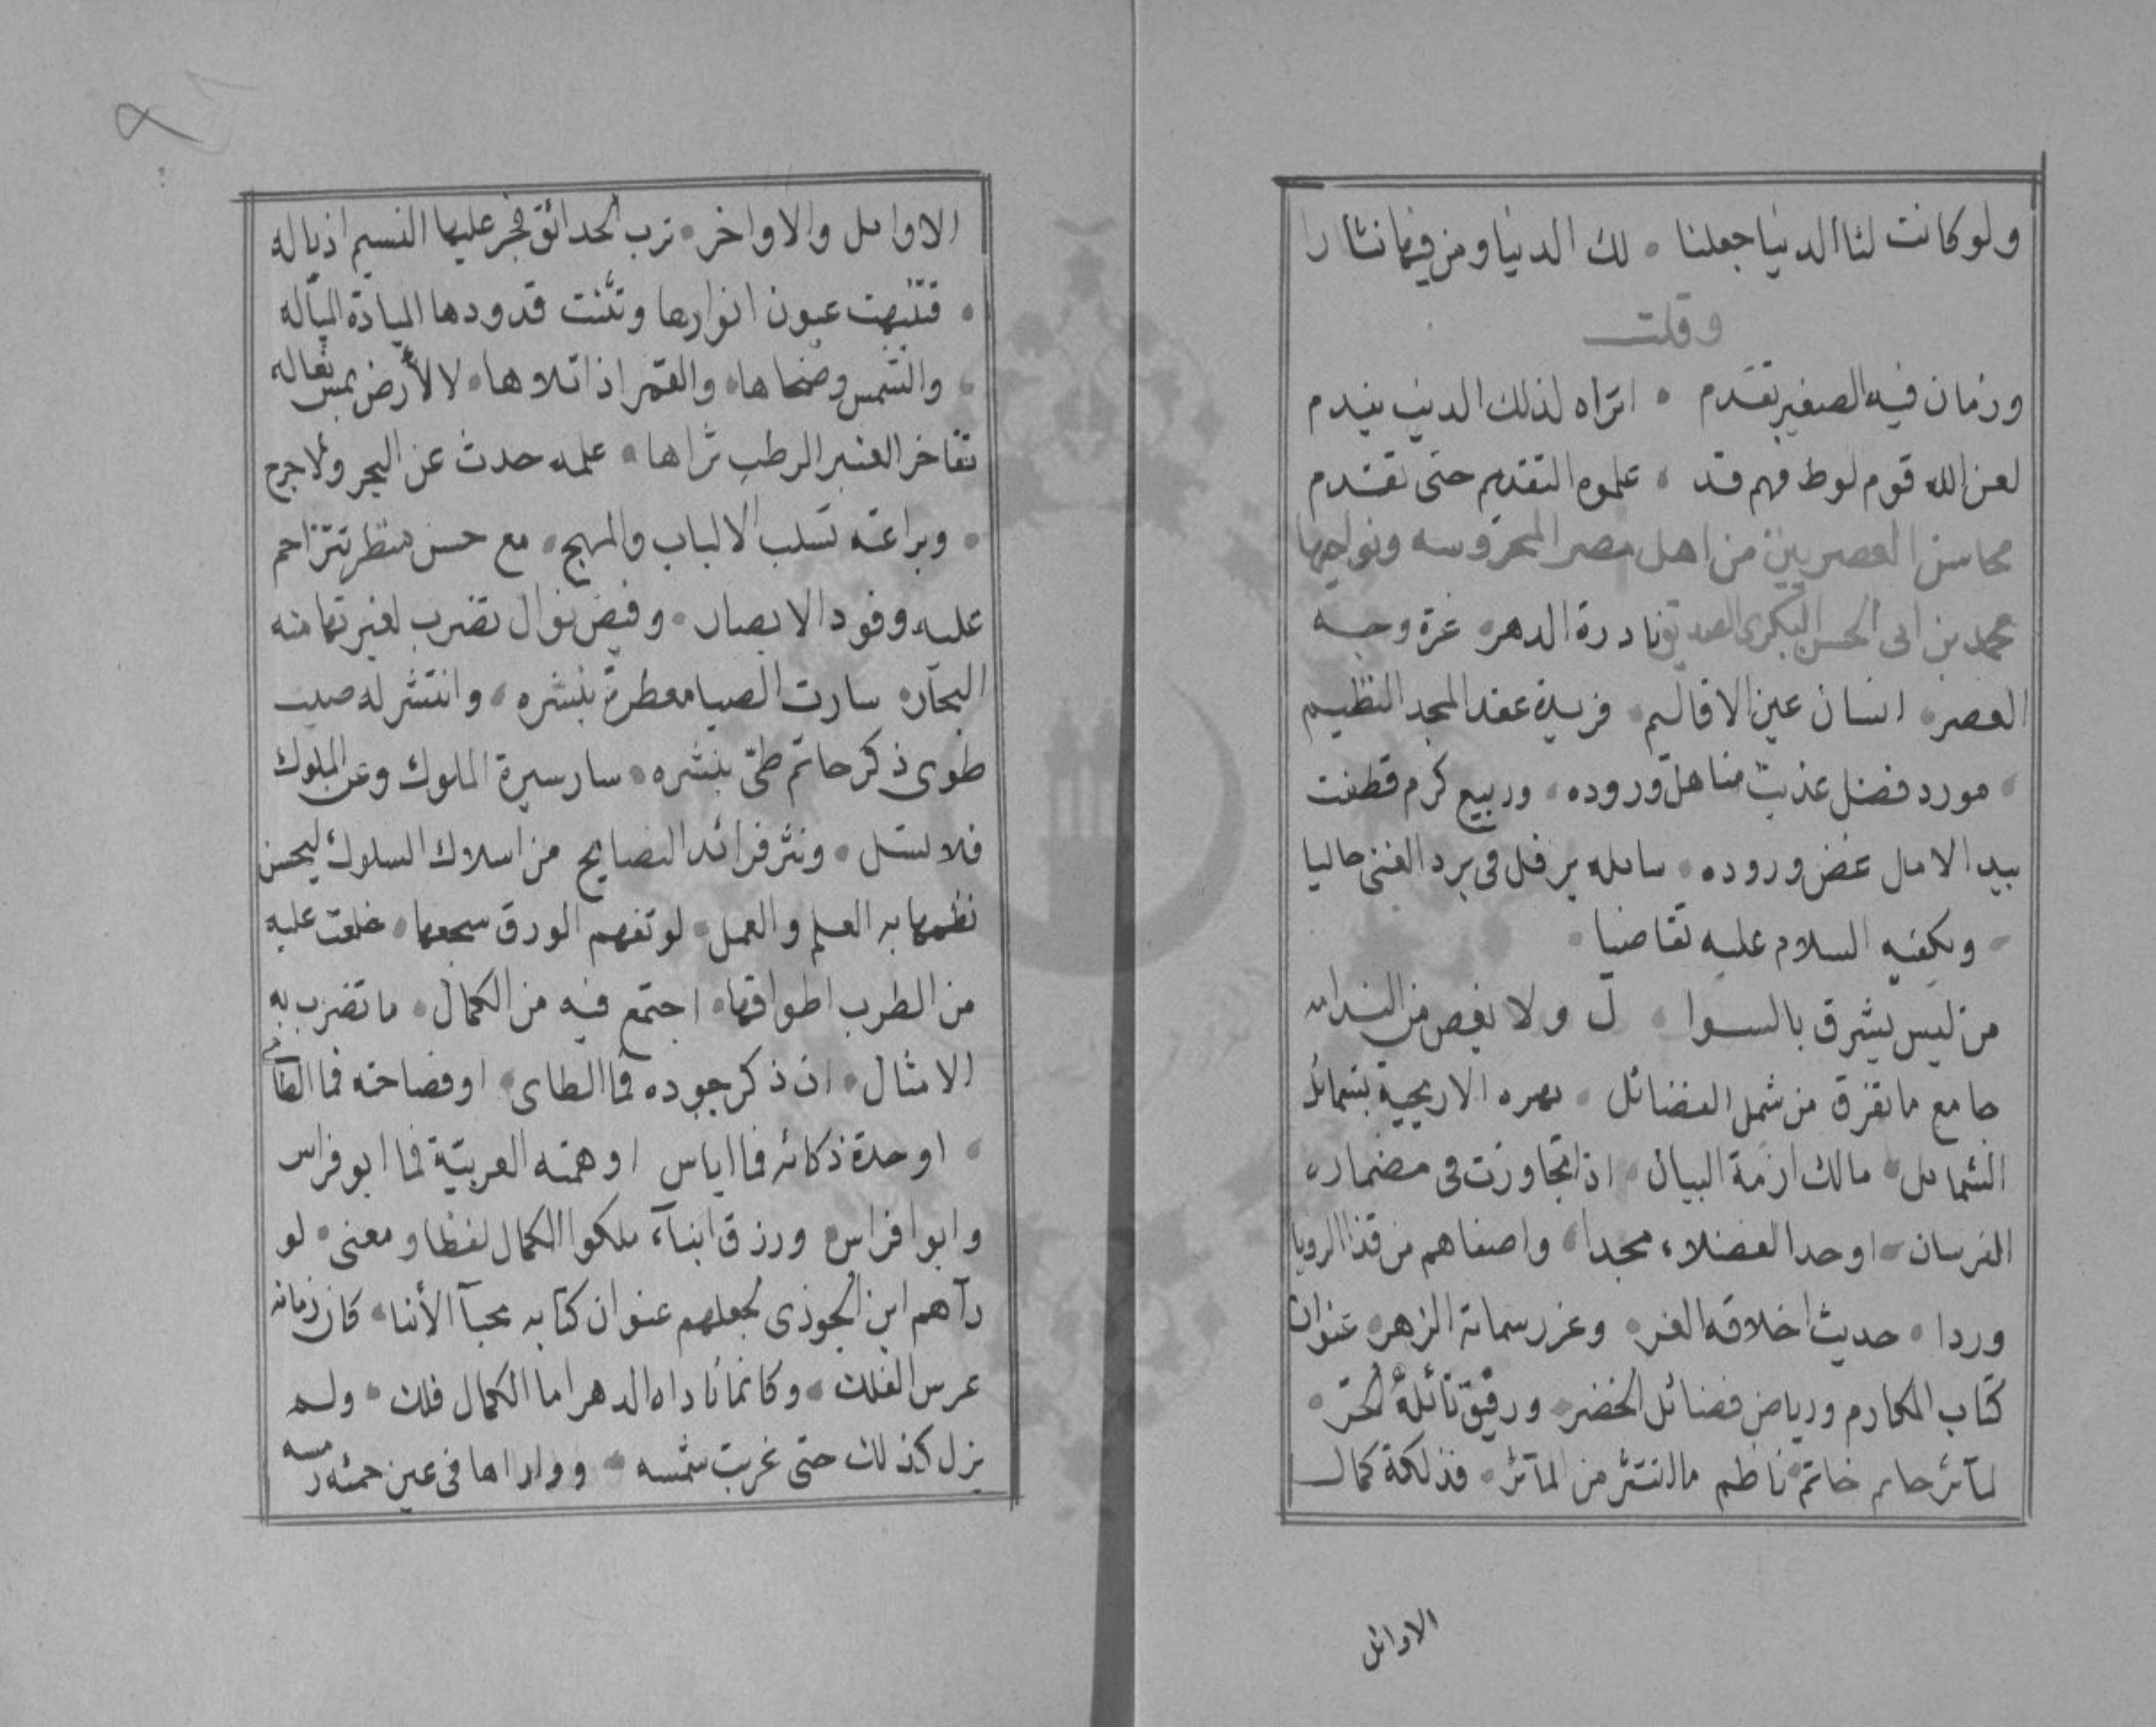 ولو كانت لنا الدنيا جعلنا • لك الدنيا ومن فيها نثارا
وقلت
وزمان فيه الصغير تقدم • اتراه لذلك الذنب يندم
لعن الله قوم لوط فهم قد • علموه التقديم حتى تقدم
محاسن العصريين من اهل مصر المحروسه ونواحيها
محمد بن ابى الحسن البكرى الصديقى نادرة الدهر • غرة وجه
العصر • انسان عين الاقاليم • فريدة عقد المجد النظيم
• مورد فضل عذبت مناهل وروده • وربيع كرم قطفت
بيد الامال غض وروده • سائله يرفل فى برد الغنى حاليا
• ويكفيه السلام عليه تقاضيا •
من ليس يشرق بالسوا • ل ولا يغص من الندامه
جامع ما تفرق من شمل الفضائل • تهزه الاريحية بشمائل
الشمايل • مالك ازمة البيان • اذا تجاوزت فى مضماره
الفرسان • اوحد الفضلاء مجدا • واصفاهم من قذا الرويا
وردا • حديث اخلاقه الغر • وغرر سماته الزهر • عنوان
كتاب المكارم ورياض فضائل الخضر • ورقيق نائله الحر •
لمآثر حاتم خاتم • ناظم ما انتثر من المآثر • فذلكة كمال
الاوائل
الاوايل والاواخر • ترب الحدائق فجر عليها النسيم اذياله
• فتنبهت عيون انوارها وتثنت قدودها الميادة المياله
• والشمس وضحاها • والقمر اذا تلاها • لا لأرض بمس نعاله
تفاخر العنبر الرطب ثراها • علمه حدث عن البحر ولا حرج
• وبراعته تسلب الالباب والمهج • مع حسن منظر تتزاحم
عليه وفود الابصار • وفيض نوال تضرب لغيرتها منه
البحار • سارت الصبا معطرة بنشره • وانتشر له صيت
طوى ذكر حاتم طىّ بنشره • سار سيرة الملوك وعن الملوك
فلا تسل • ونثر فرائد النصايح من اسلاك السلوك ليحسن
نظمها به العلم والعمل • لو تفهم الورق سجعها • خلعت عليه
من الطرب اطواقها • اجتمع فيه من الكمال • ما تضرب به
الامثال • ان ذكر جوده فما الطاى • او فصاحته فما الطآم
• او حدة ذكائه فما اياس او همته العربية فما ابو فراس
وابوا فراس • ورزق ابناء ملكوا الكمال لفظا ومعنى • لو
رآهم ابن الجوزى لجعلهم عنوان كتابه نجبآ الأبنا • كان زمانه
عرس الفلك • وكانما ناداه الدهر اما الكمال فلك • ولم
يزل كذلك حتى غربت شمسه • وواراها فى عين حمئه رمسه